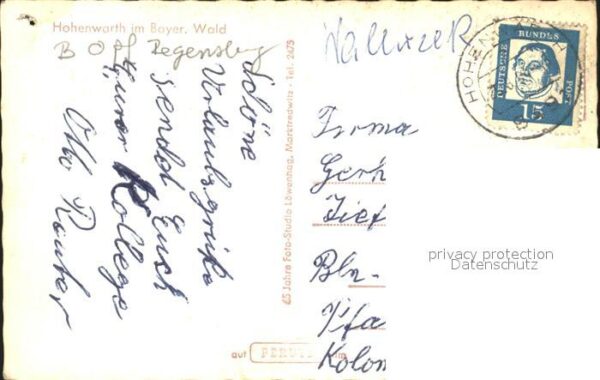 Hohenwarth im Bayer. Wald
B Opf Regensbg
Schöne
Urlaubsgrüße
sendet Euch
Eurer Kollege
Otto
45 Jahre Foto-Studio Löwenhag, Marktredwitz - Tel. 2475
auf
HOHEN
DEUTSCHE BUNDES POST
15
Firma
Gerh
Tief
Bln-
Kolon
privacy protection
Datenschutz